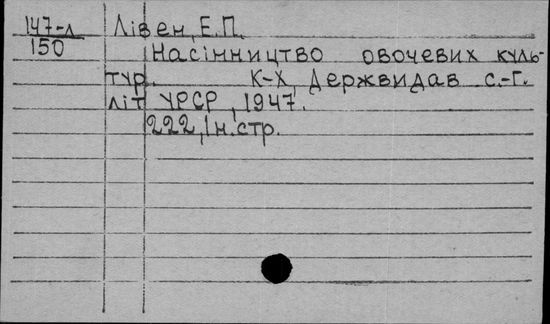 147-л Лівен, Е.П.
150
Насінництво овочевих куль-
тур. К-Х, Держвидав с.-г.
літ УРСР, 1947.
222, 1 н.стр.